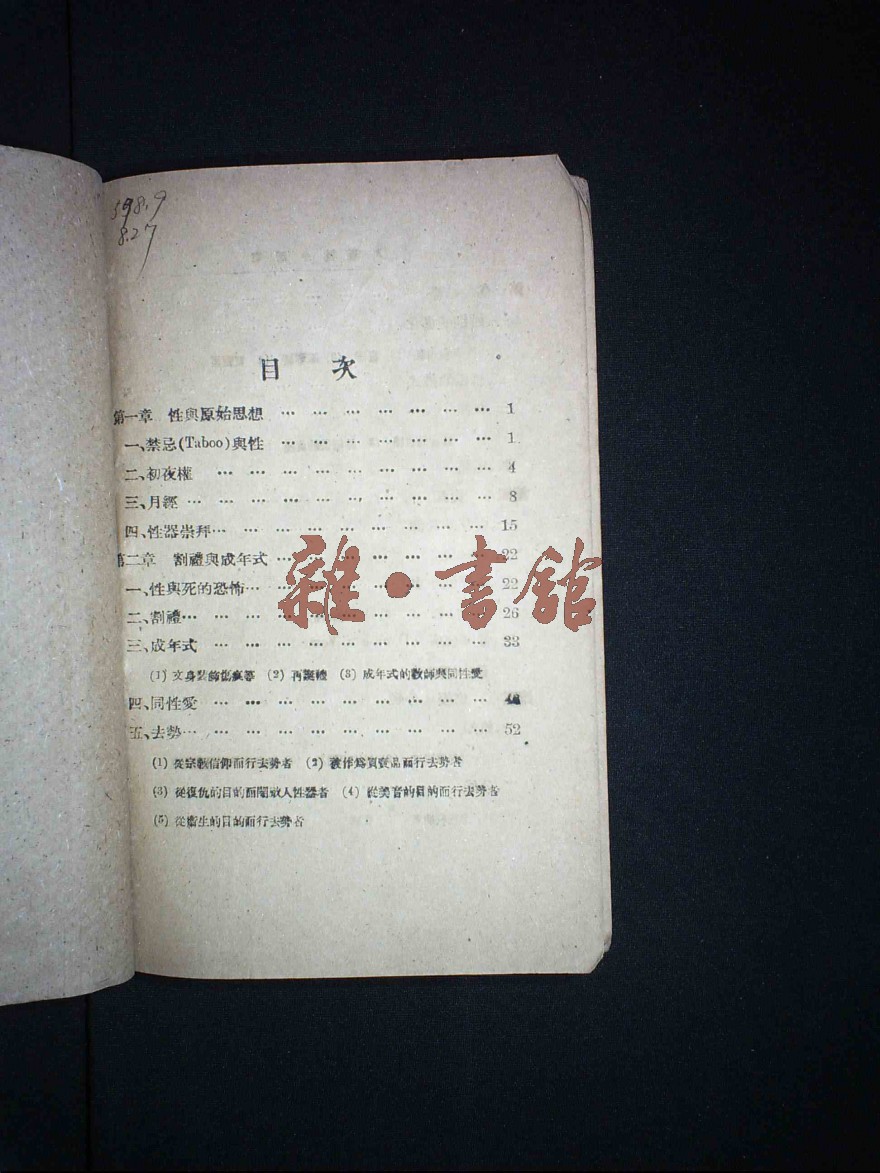 598.9
8.27
目 次
第一章 性與原始思想 … … … … … … … 1
一、禁忌(Taboo)與性 … … … … … … … 1
二、初夜權 … … … … … … … … … 4
三、月經 … … … … … … … … … … 8
四、性器崇拜… … … … … … … … … 15
第二章 割禮與成年式 … … … … … … … 22
一、性與死的恐怖… … … … … … … … 22
二、割禮… … … … … … … … … … 26
三、成年式 … … … … … … … … … 33
(1) 文身裝飾傷痕等 (2) 再誕禮 (3) 成年式的教師與同性愛
四、同性愛 … … … … … … … … …
五、去勢… … … … … … … … … … 52
(1) 從宗教信仰而行去勢者 (2) 被作爲買賣品而行去勢者
(3) 從復仇的目的而閹敵人性器者 (4) 從美音的目的而行去勢者
(5) 從衞生的目的而行去勢者
雜·書館